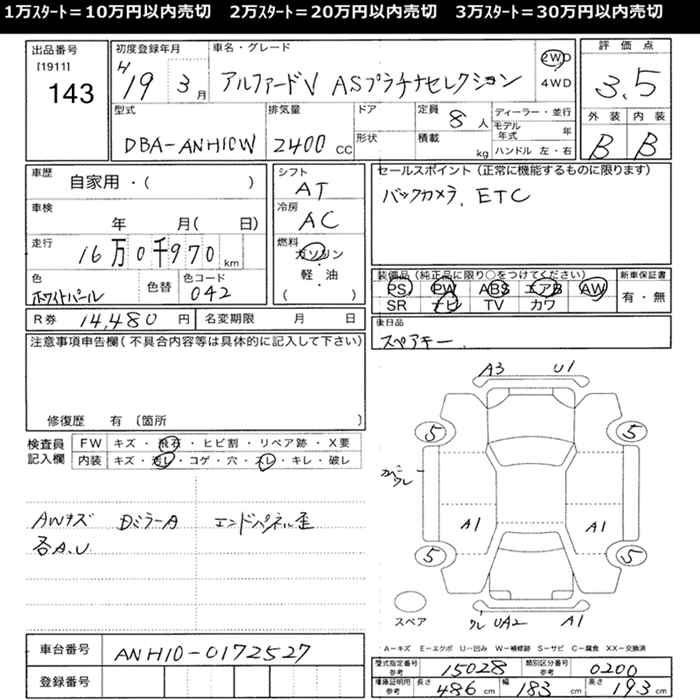 1万ｽﾀｰﾄ＝10万円以内売切　2万ｽﾀｰﾄ＝20万円以内売切　3万ｽﾀｰﾄ＝30万円以内売切
出品番号 [1911] 143
初度登録年月 H19 3月
車名・グレード アルファードV ASプラチナセレクション 2WD 4WD
評価点 3.5
外装 B 内装 B
型式 DBA-ANH10W
排気量 2400 CC
ドア 形状
定員 8人 積載 kg
ディーラー・並行
モデル年式 年
ハンドル 左・右
車歴 自家用・( )
車検 年 月( 日)
走行 16万0千970km
色 ホワイトパール 色替 色コード 042
シフト AT
冷房 AC
燃料 ガソリン・軽・油 ( )
セールスポイント (正常に機能するものに限ります)
バックカメラ、ETC
装備品 (純正品に限り○をつけてください)
PS PW ABS エアB AW
SR ナビ TV カワ
新車保証書 有・無
R券 14,480円 名変期限 月 日
後日品
スペアキー.
注意事項申告欄(不具合内容等は具体的に記入して下さい)
修復歴 有 〔箇所 〕
検査員記入欄
FW キズ・飛石・ヒビ割・リペア跡・X要
内装 キズ・汚レ・コゲ・穴・スレ・キレ・破レ
AWキズ DミラーA エンドパネル歪
各A.U
A3 U1
5 5
ワレ
A1 A1
5 5
スペア
ワレ UA2 A1
A−キズ E−エクボ U−凹み W−補修跡 S−サビ C−腐食 XX−交換済
車台番号 ANH10-0172527
登録番号
型式指定番号 参考 15028 類別区分番号 参考 0200
車庫証明用 参考 長さ 486cm 幅 183cm 高さ 193cm